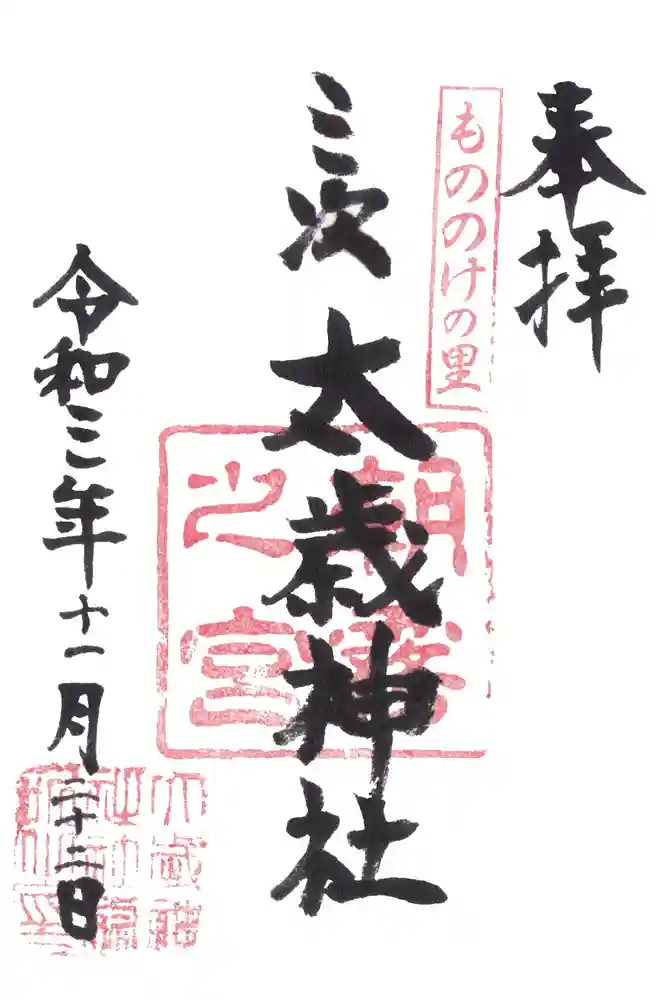 奉拝
もののけの里
三次 太歳神社
朝霧
之宮
令和三年十一月二十三日